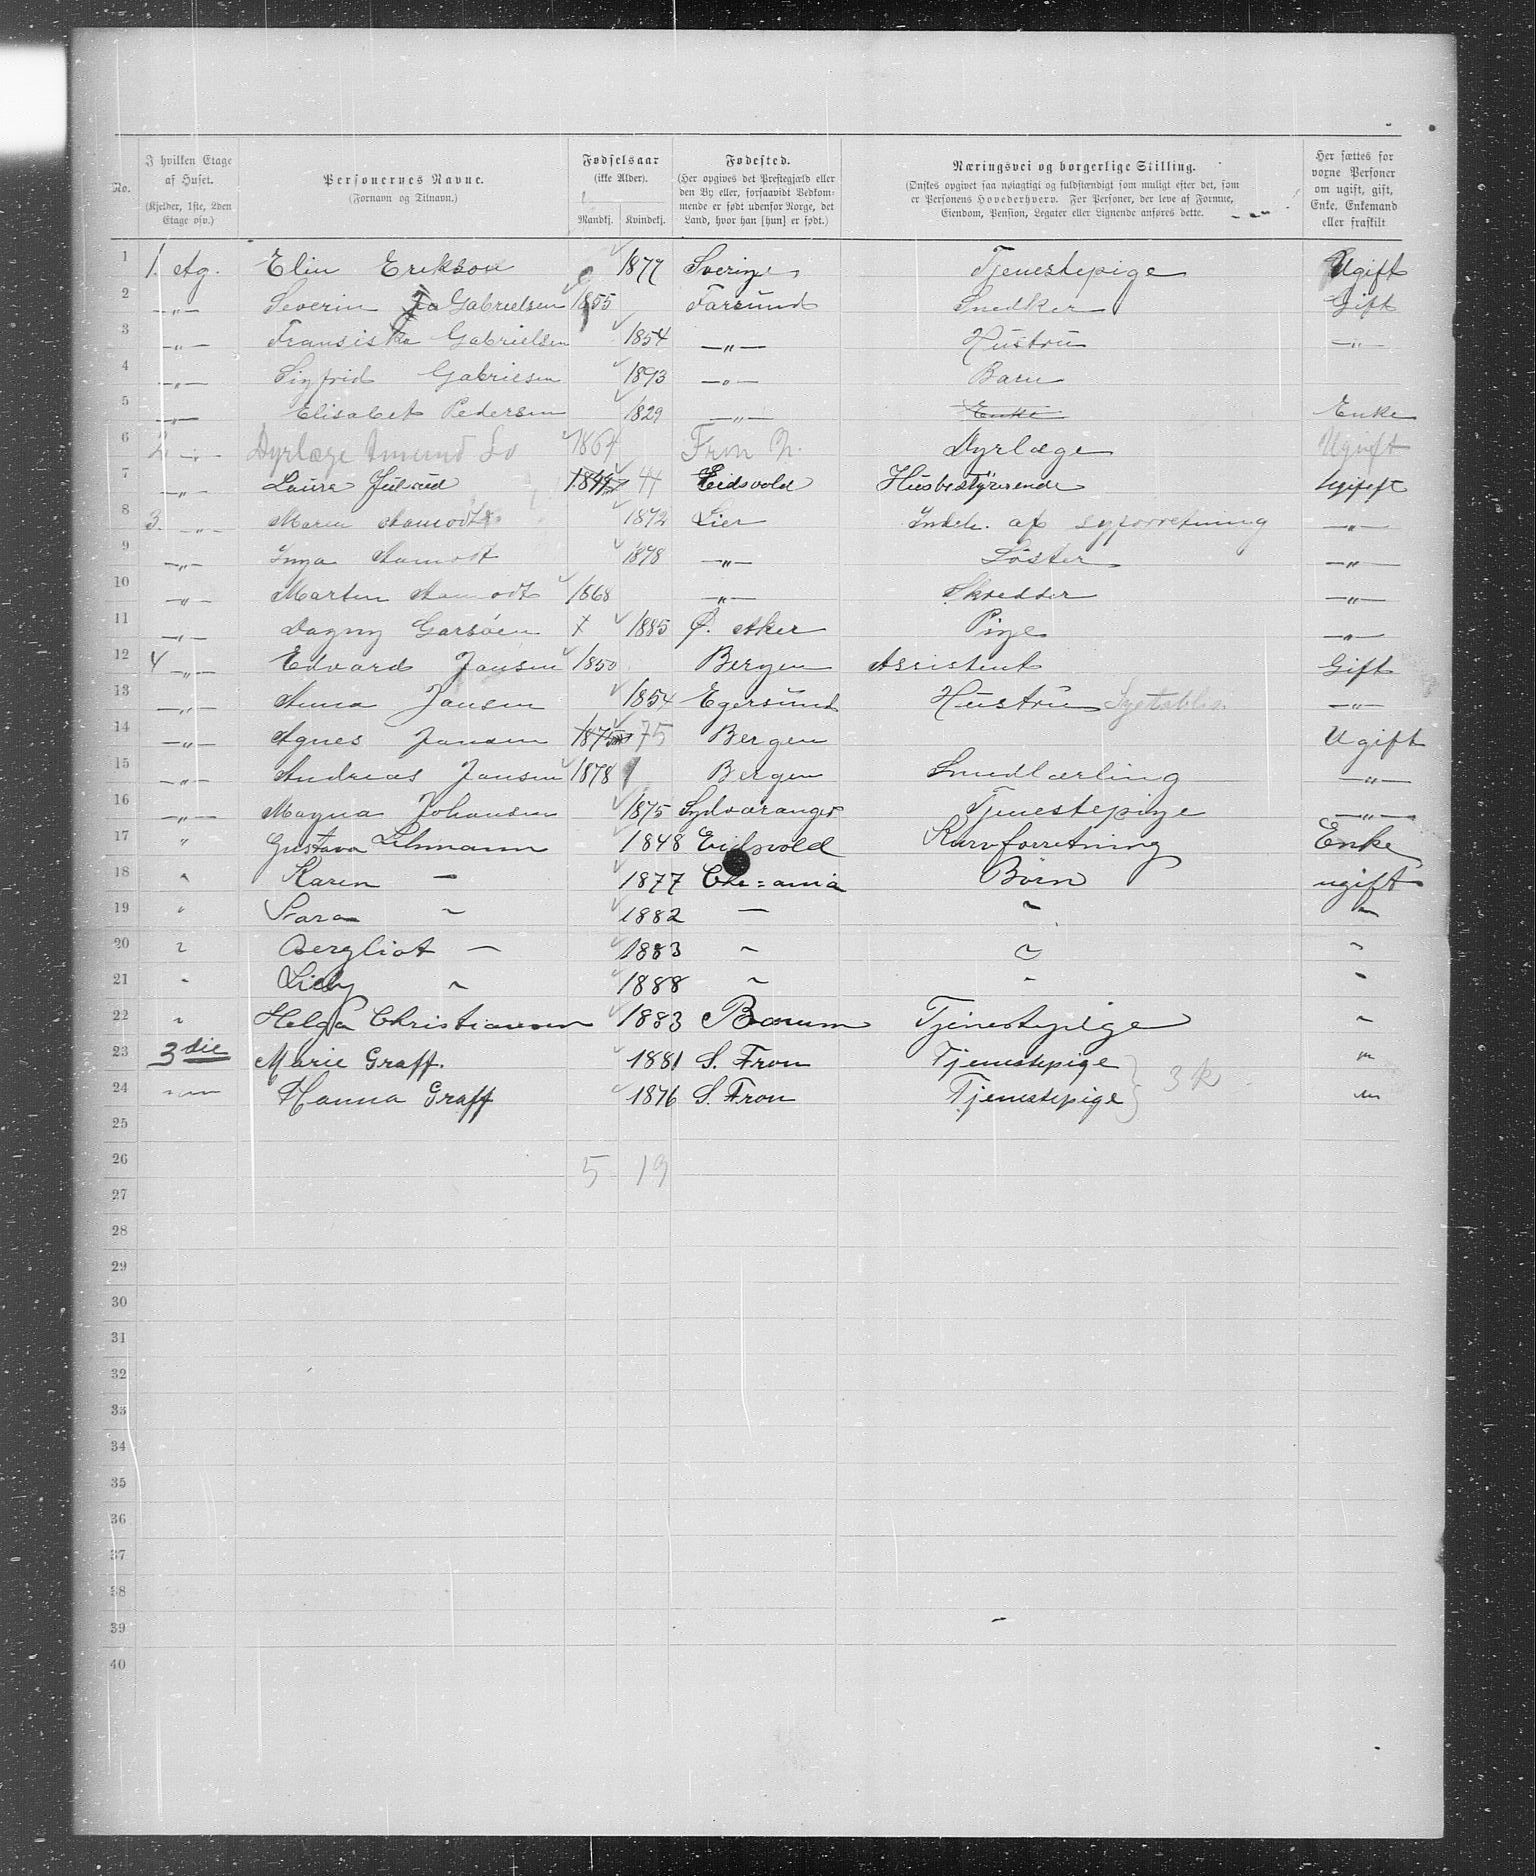 No. | I hvilken Etage af Huset. (Kjelder, 1ste, 2den Etage osv.) | Personernes Navne. (Fornavn og Tilnavn.) | Fødselsaar (ikke Alder). Mandkj. Kvindekj. | Fødested. (Her opgives det Præstegjæld eller den By eller, forsaavidt Vedkommende er født udenfor Norge, det Land, hvor han [hun] er født.) | Næringsvei og borgerlige Stilling. (Ønskes opgivet saa nøiagtigt og fuldstændigt som muligt efter det, som er Personens Hovederhverv. For Personer, der leve af Formue, Eiendom, Pension, Legater eller Lignende anføres dette. | Her sættes for voxne Personer om ugift, gift, Enke, Enkemand eller fraskilt
1 1. Etg. Elin Erikson 1877 Sverige Tjenestepige Ugift
2 —„— Severin Gabrielsen 1855 Farsund Snedker Gift
3 —„— Fransiska Gabrielsen 1854 —„— Hustru —„—
4 —„— Sigfrid Gabrielsen 1893 —„— Barn
5 —„— Elisabet Pedersen 1829 —„— Enke Enke
6 2 —„— Dyrlæge Amund Lo 1864 Fron N. Dyrlæge Ugift
7 —„— Laura Julsrud 1844 44 Eidsvold Husbestyrerende Ugift
8 3. —„— Maren Aamodt 1872 Lier Indeh. af syforretning —„—
9 —„— Inga Aamodt 1878 —„— Søster —„—
10 —„— Marten Aamodt 1868 —„— Skredder —„—
11 —„— Dagny Garsøen X 1885 Ø. Aker Pige —„—
12 4 —„— Edvard Jansen 1850 Bergen Assistent Gift
13 —„— Anna Jansen 1854 Egersund Hustru —„—
14 —„— Agnes Jansen 1875 75 Bergen Ugift
15 —„— Andreas Jansen 1878 Bergen Smedlærling —„—
16 —„— Magna Johansen 1875 Sydvaranger Tjenestepige —„—
17 „ Gustava Lehmann 1848 Eidsvold Kurvforretning Enke
18 „ Karen — 1877 Chr=ania Børn ugift
19 „ Sara „ 1882 — „ „
20 „ Bergliot — 1883 „ „ „
21 „ Lilly „ 1888 „ „ „
22 „ Helga Christiansen 1883 Bærum Tjenestepige „
23 3die Marie Graff. 1881 S. Fron Tjenestepige „
24 „ Hanna Graff 1876 S. Fron Tjenestepige „
3 k
25
26 5 19
27
28
29
30
31
32
33
34
35
36
37
38
39
40